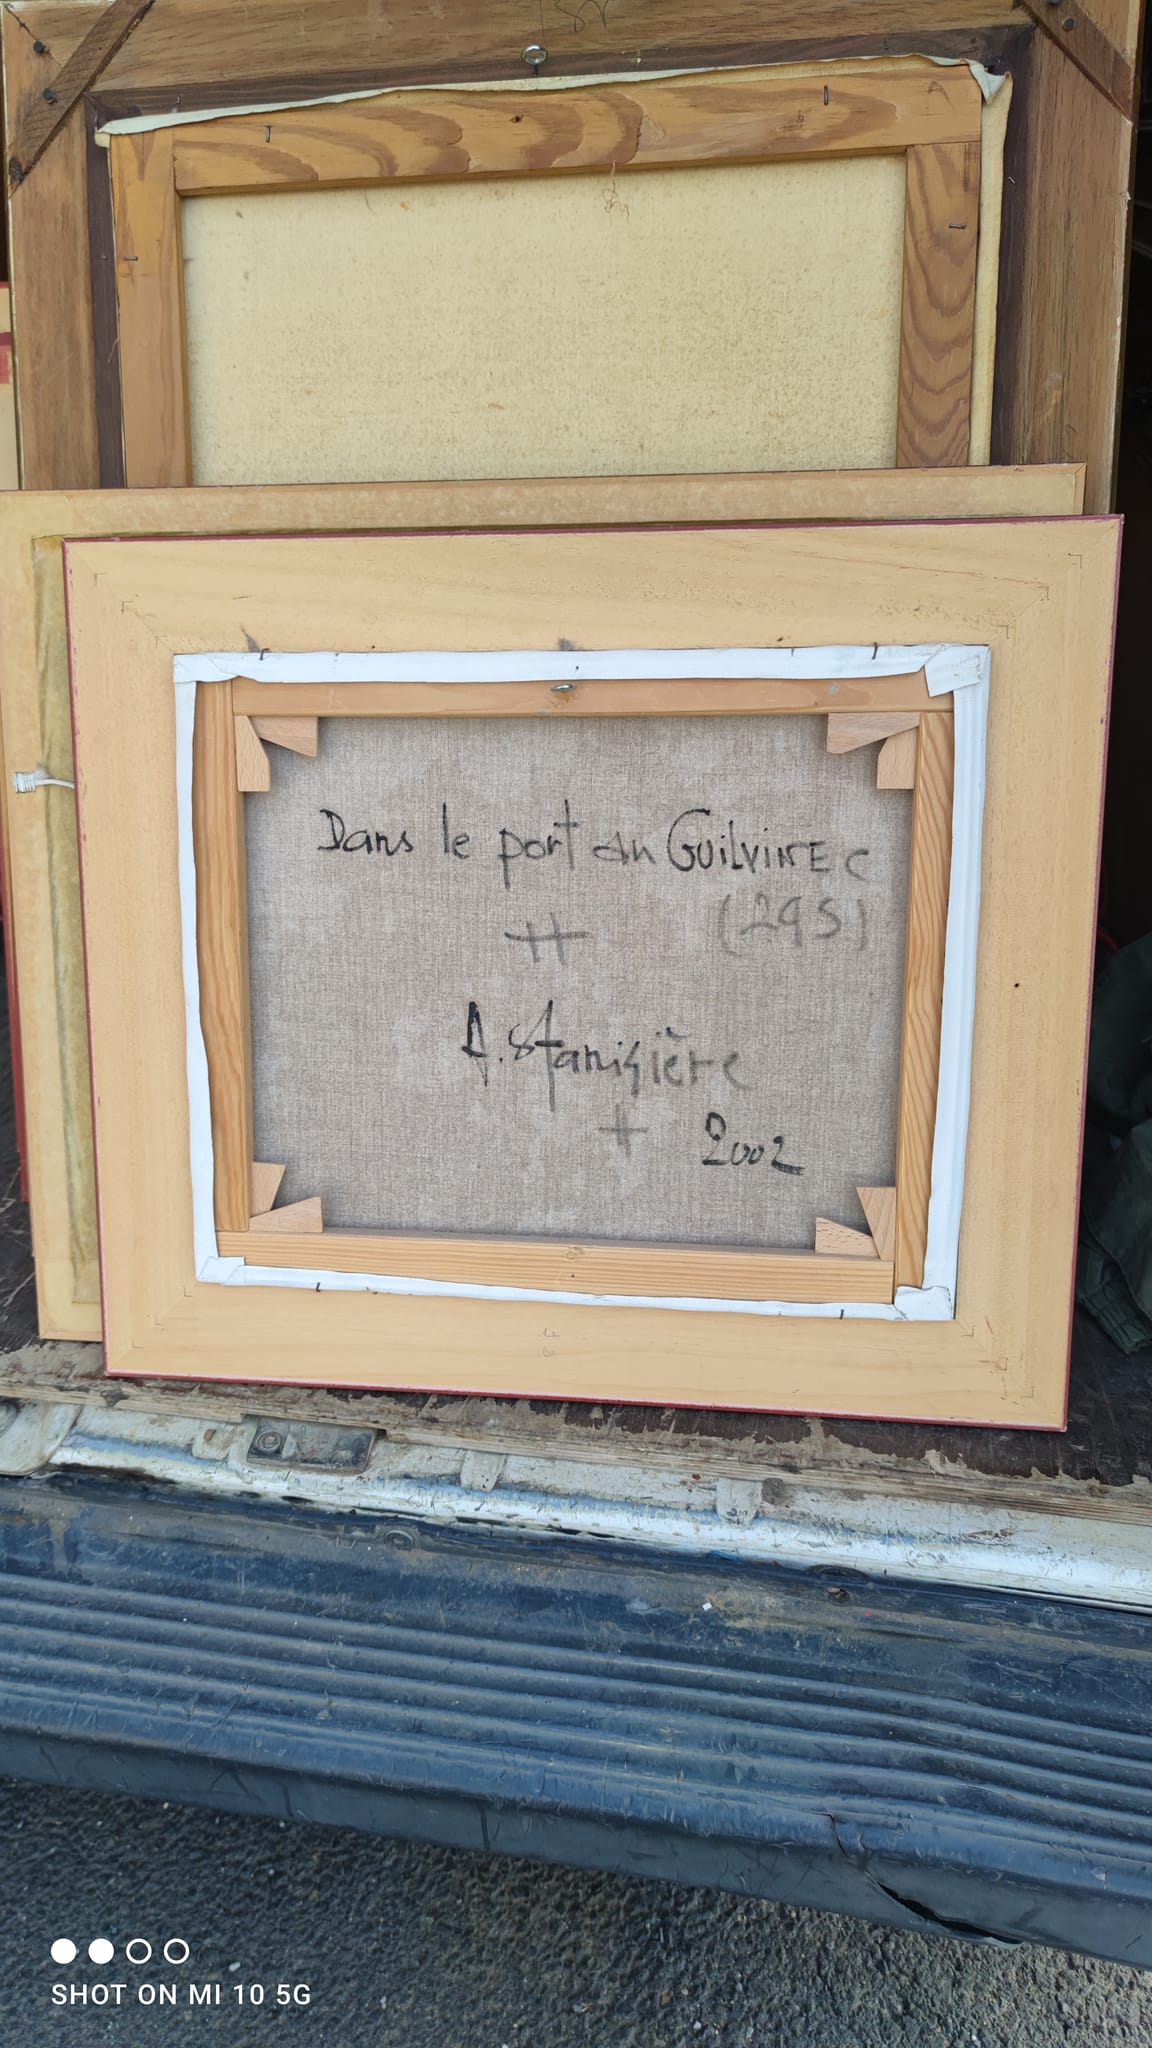 Dans le port du GUILVINEC
(29S)
A. Stanisière
2002
SHOT ON MI 10 5G